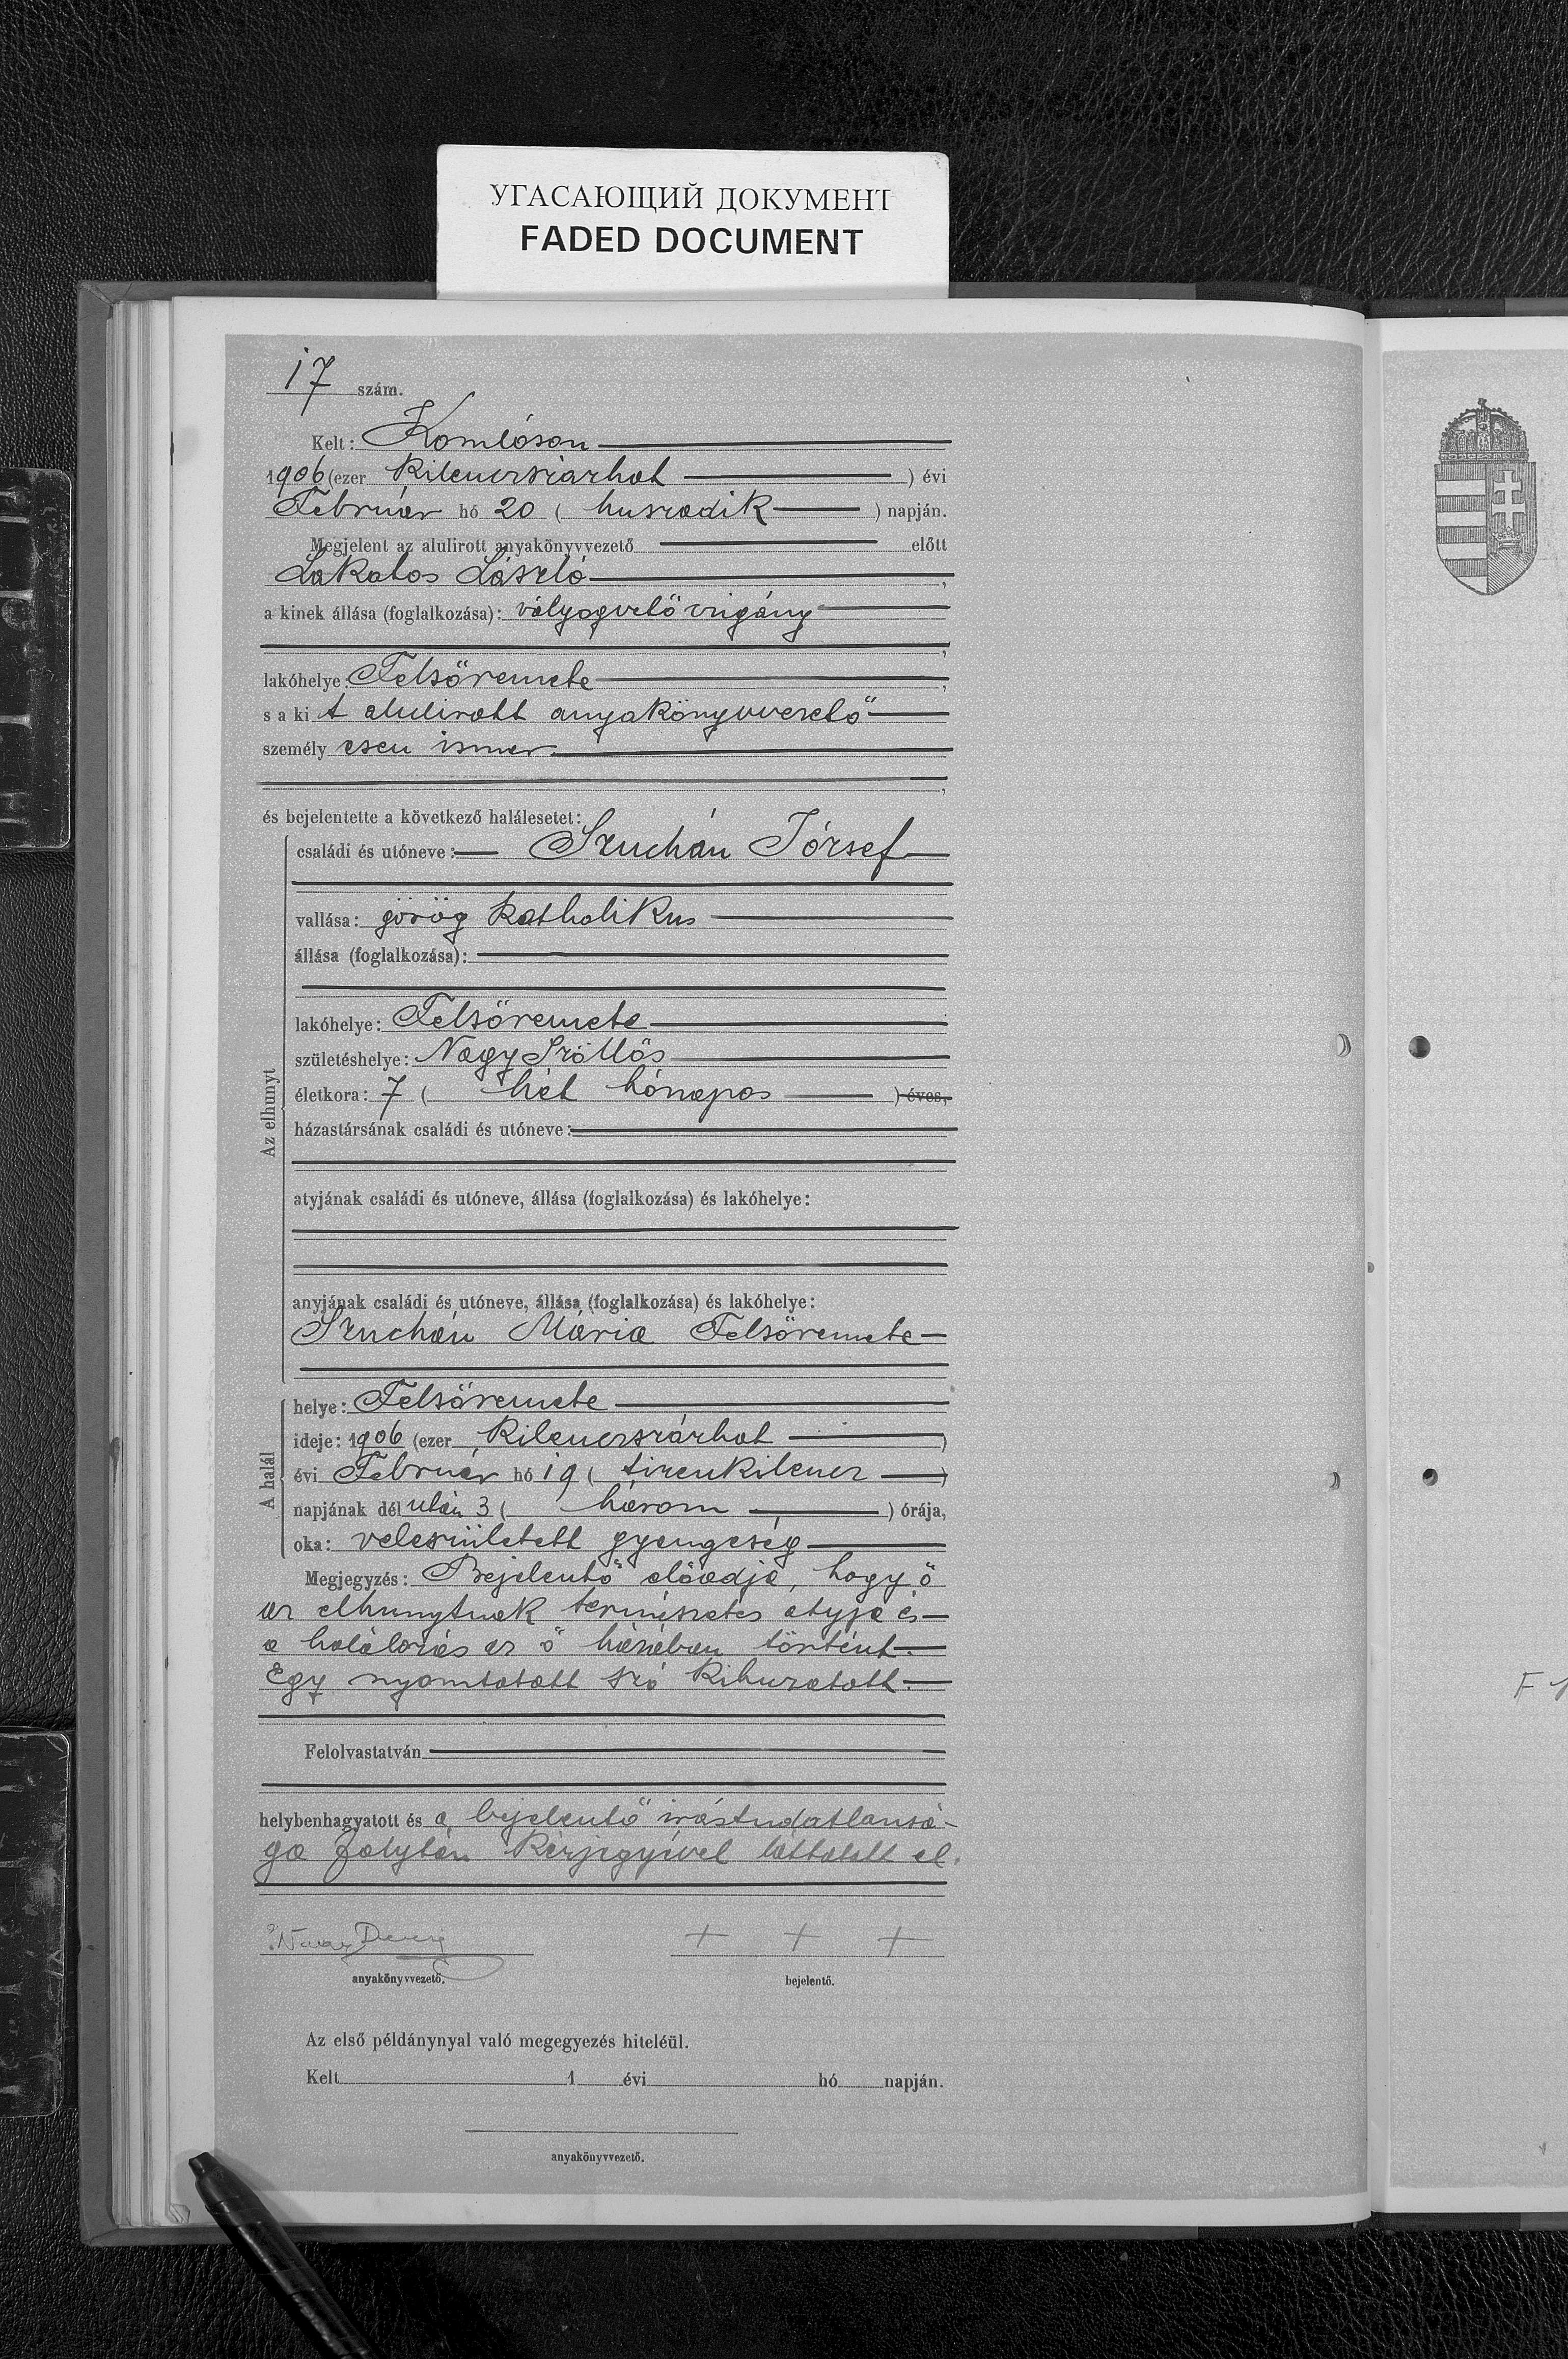 УГАСАЮЩИЙ ДОКУМЕНТ
FADED DOCUMENT
17 szám.
Kelt: Komlóson
1906 (ezer kilencszázhat ) évi
Február hó 20 ( huszadik ) napján.
Megjelent az alulirott anyakönyvvezető előtt
Lakatos László ,
a kinek állása (foglalkozása): vályogvető czigány
,
lakóhelye Felsőremete ,
s a ki t alulirott anyakönyvvezető
személy esen ismer
,
és bejelentette a következő halálesetet:
Az elhunyt
családi és utóneve: Szuchán József
vallása: görög katholikus
állása (foglalkozása):
lakóhelye: Felsőremete
születéshelye: Nagy Szőllős
életkora: 7 ( hét hónapos ) éves,
házastársának családi és utóneve:
atyjának családi és utóneve, állása (foglalkozása) és lakóhelye:
anyjának családi és utóneve, állása (foglalkozása) és lakóhelye:
Szuchán Mária Felsőremete
A halál
helye: Felsőremete
ideje: 1906 (ezer kilencszázhat )
évi Február hó 19 ( tizenkilencz )
napjának dél után 3 ( három ) órája,
oka: veleszületett gyengeség
Megjegyzés: Bejelentő előadja, hogy ő
az elhunytnak természetes atyja és
a halálozás az ő házában történt.
Egy nyomtatott szó kihuzatott.
Felolvastatván
helybenhagyatott és a bejelentő irástudatlansá-
ga folytán kézjegyével láttatott el.
+ + +
anyakönyvvezető. bejelentő.
Az első példánynyal való megegyezés hiteléül.
Kelt 1 évi hó napján.
anyakönyvvezető.